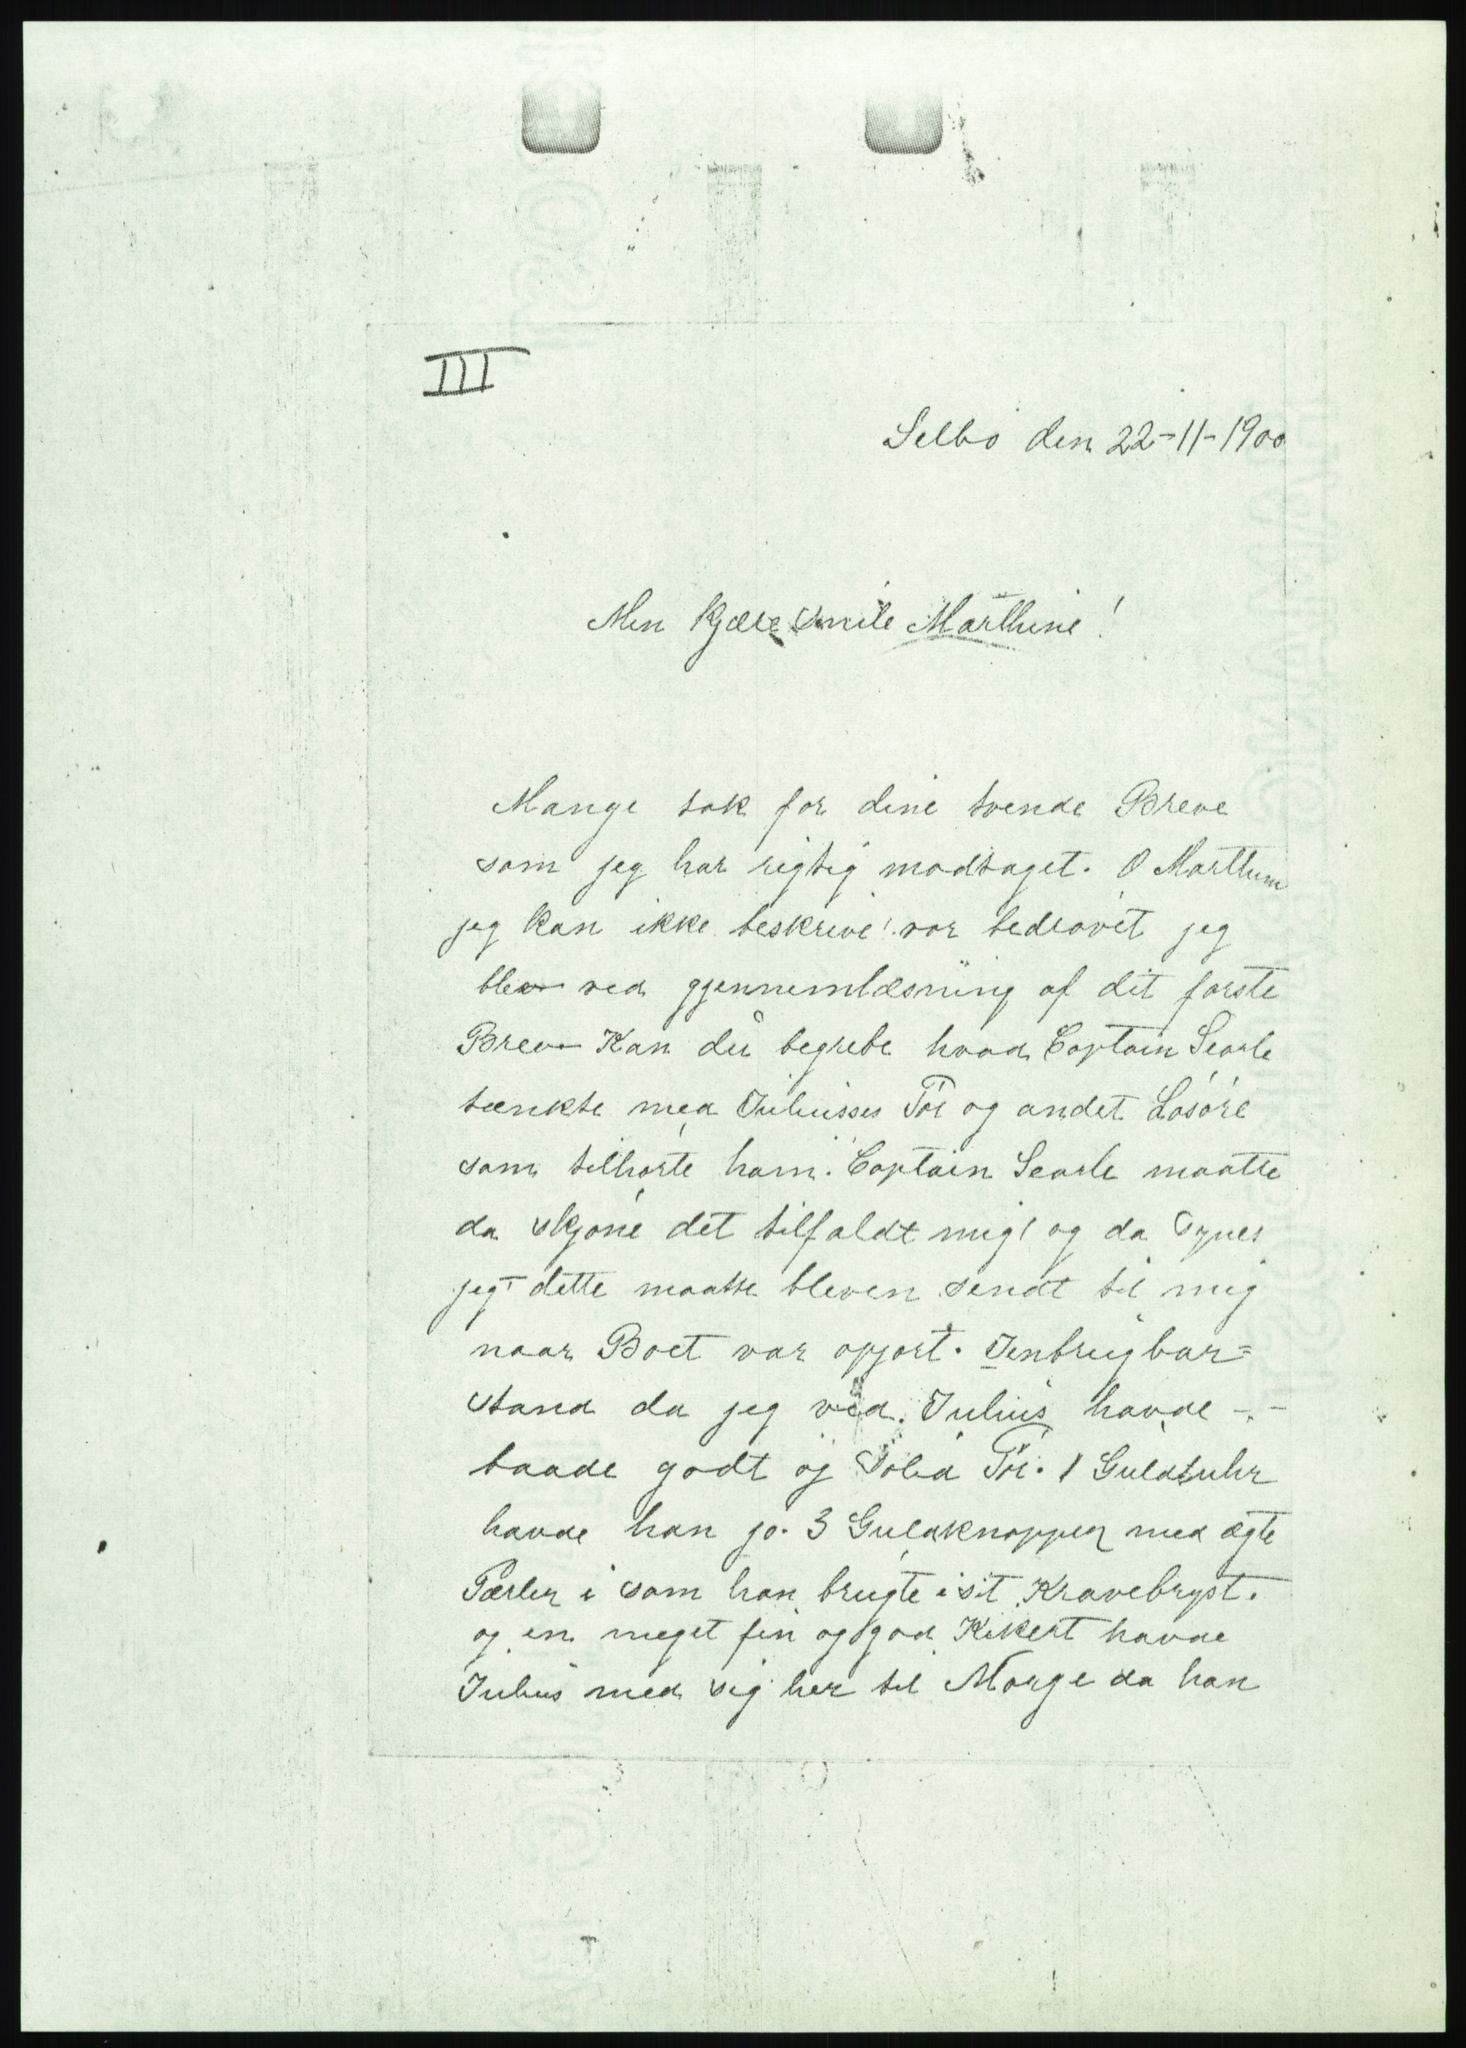 III
Selbo den 22-11-1900
Min kjære snile Marthine!
Mange tak for dine tvende Breve
som jeg har rigtig modtaget. O Marthine
jeg kan ikke beskrive vor bedrøvet jeg
blev ved gjennemlæsning af dit første
Brev Kan du begrebe hvad Captain Searle
tænkte med Juliusses Tøi og andet Løsøre
som tilhørte ham. Captain Searle maatte
da skjøne det tilfaldt mig! og da Synes
jeg dette maatte bleven sendt til mig
naar Boet var opjort. I en brugbar=
stand da jeg ved. Julius havde - -
baade godt og Solid Tøi. 1 Guldsuhr
havde han jo. 3 Guldknapper med ægte
Pærler i som han brugte i sit Kravebryst.
og en meget fin og god Kikert havde
Julius med sig her til Norge da han